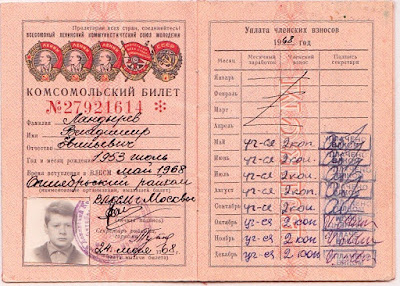 Пролетарии всех стран, соединяйтесь!
ВСЕСОЮЗНЫЙ ЛЕНИНСКИЙ КОММУНИСТИЧЕСКИЙ СОЮЗ МОЛОДЕЖИ
ЛЕНИН ЛЕНИН ЛЕНИН СССР
КОМСОМОЛЬСКИЙ БИЛЕТ
№27921614 ✻
Фамилия
Имя Владимир
Отчество
Год и месяц рождения 1953 июль
Время вступления в ВЛКСМ май 1968
Октябрьский райком
(наименование организации, выдавшей билет)
ВЛКСМ г Москвы
Секретарь
24 мая 68.
(дата выдачи билета)
Уплата членских взносов
1968 год
Месяц Месячный заработок Членский взнос Подпись секретаря
Январь
Февраль
Март
Апрель
Май уч-ся 2 коп.
Июнь уч-ся 2 коп.
Июль уч-ся 2 коп.
Август уч-ся 2 коп.
Сентябрь уч-ся 2 коп.
Октябрь уч-ся 2 коп
Ноябрь уч-ся 2 коп
Декабрь уч-ся 2 коп